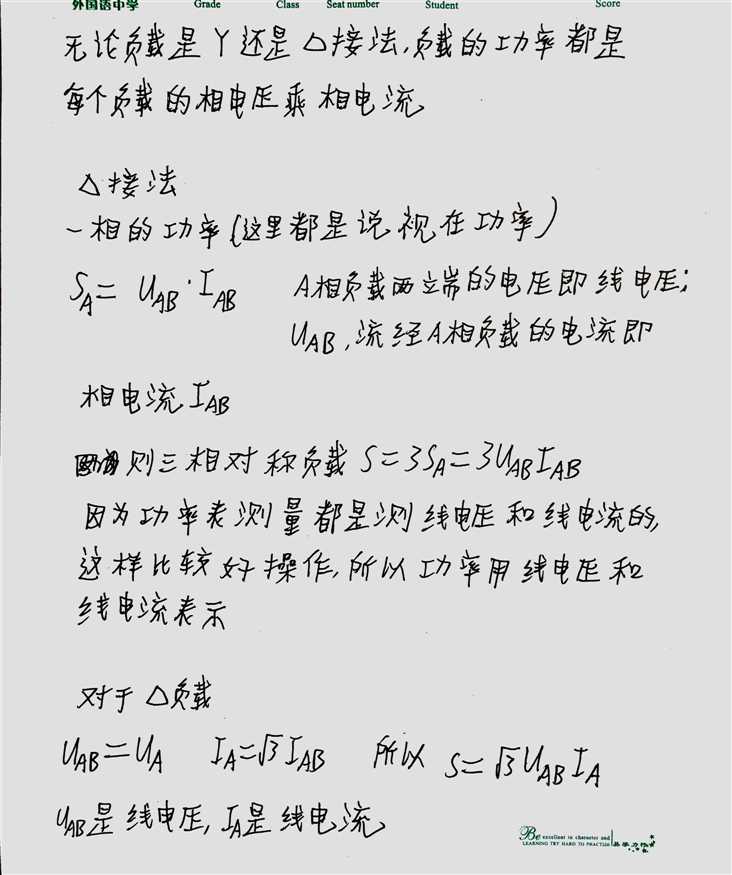 外国语中学 Grade Class Seat number Student Score
无论负载是Y还是△接法,负载的功率都是
每个负载的相电压乘相电流
△接法
一相的功率(这里都是说视在功率)
S_A= U_AB·I_AB A相负载两端的电压即线电压;
U_AB,流经A相负载的电流即
相电流I_AB
则三相对称负载 S=3S_A=3U_AB I_AB
因为功率表测量都是测线电压和线电流的,
这样比较好操作,所以功率用线电压和
线电流表示
对于△负载
U_AB=U_A I_A=√3 I_AB 所以 S=√3 U_AB I_A
U_AB是线电压,I_A是线电流
Be excellent in character and
LEARNING TRY HARD TO PRACTISE